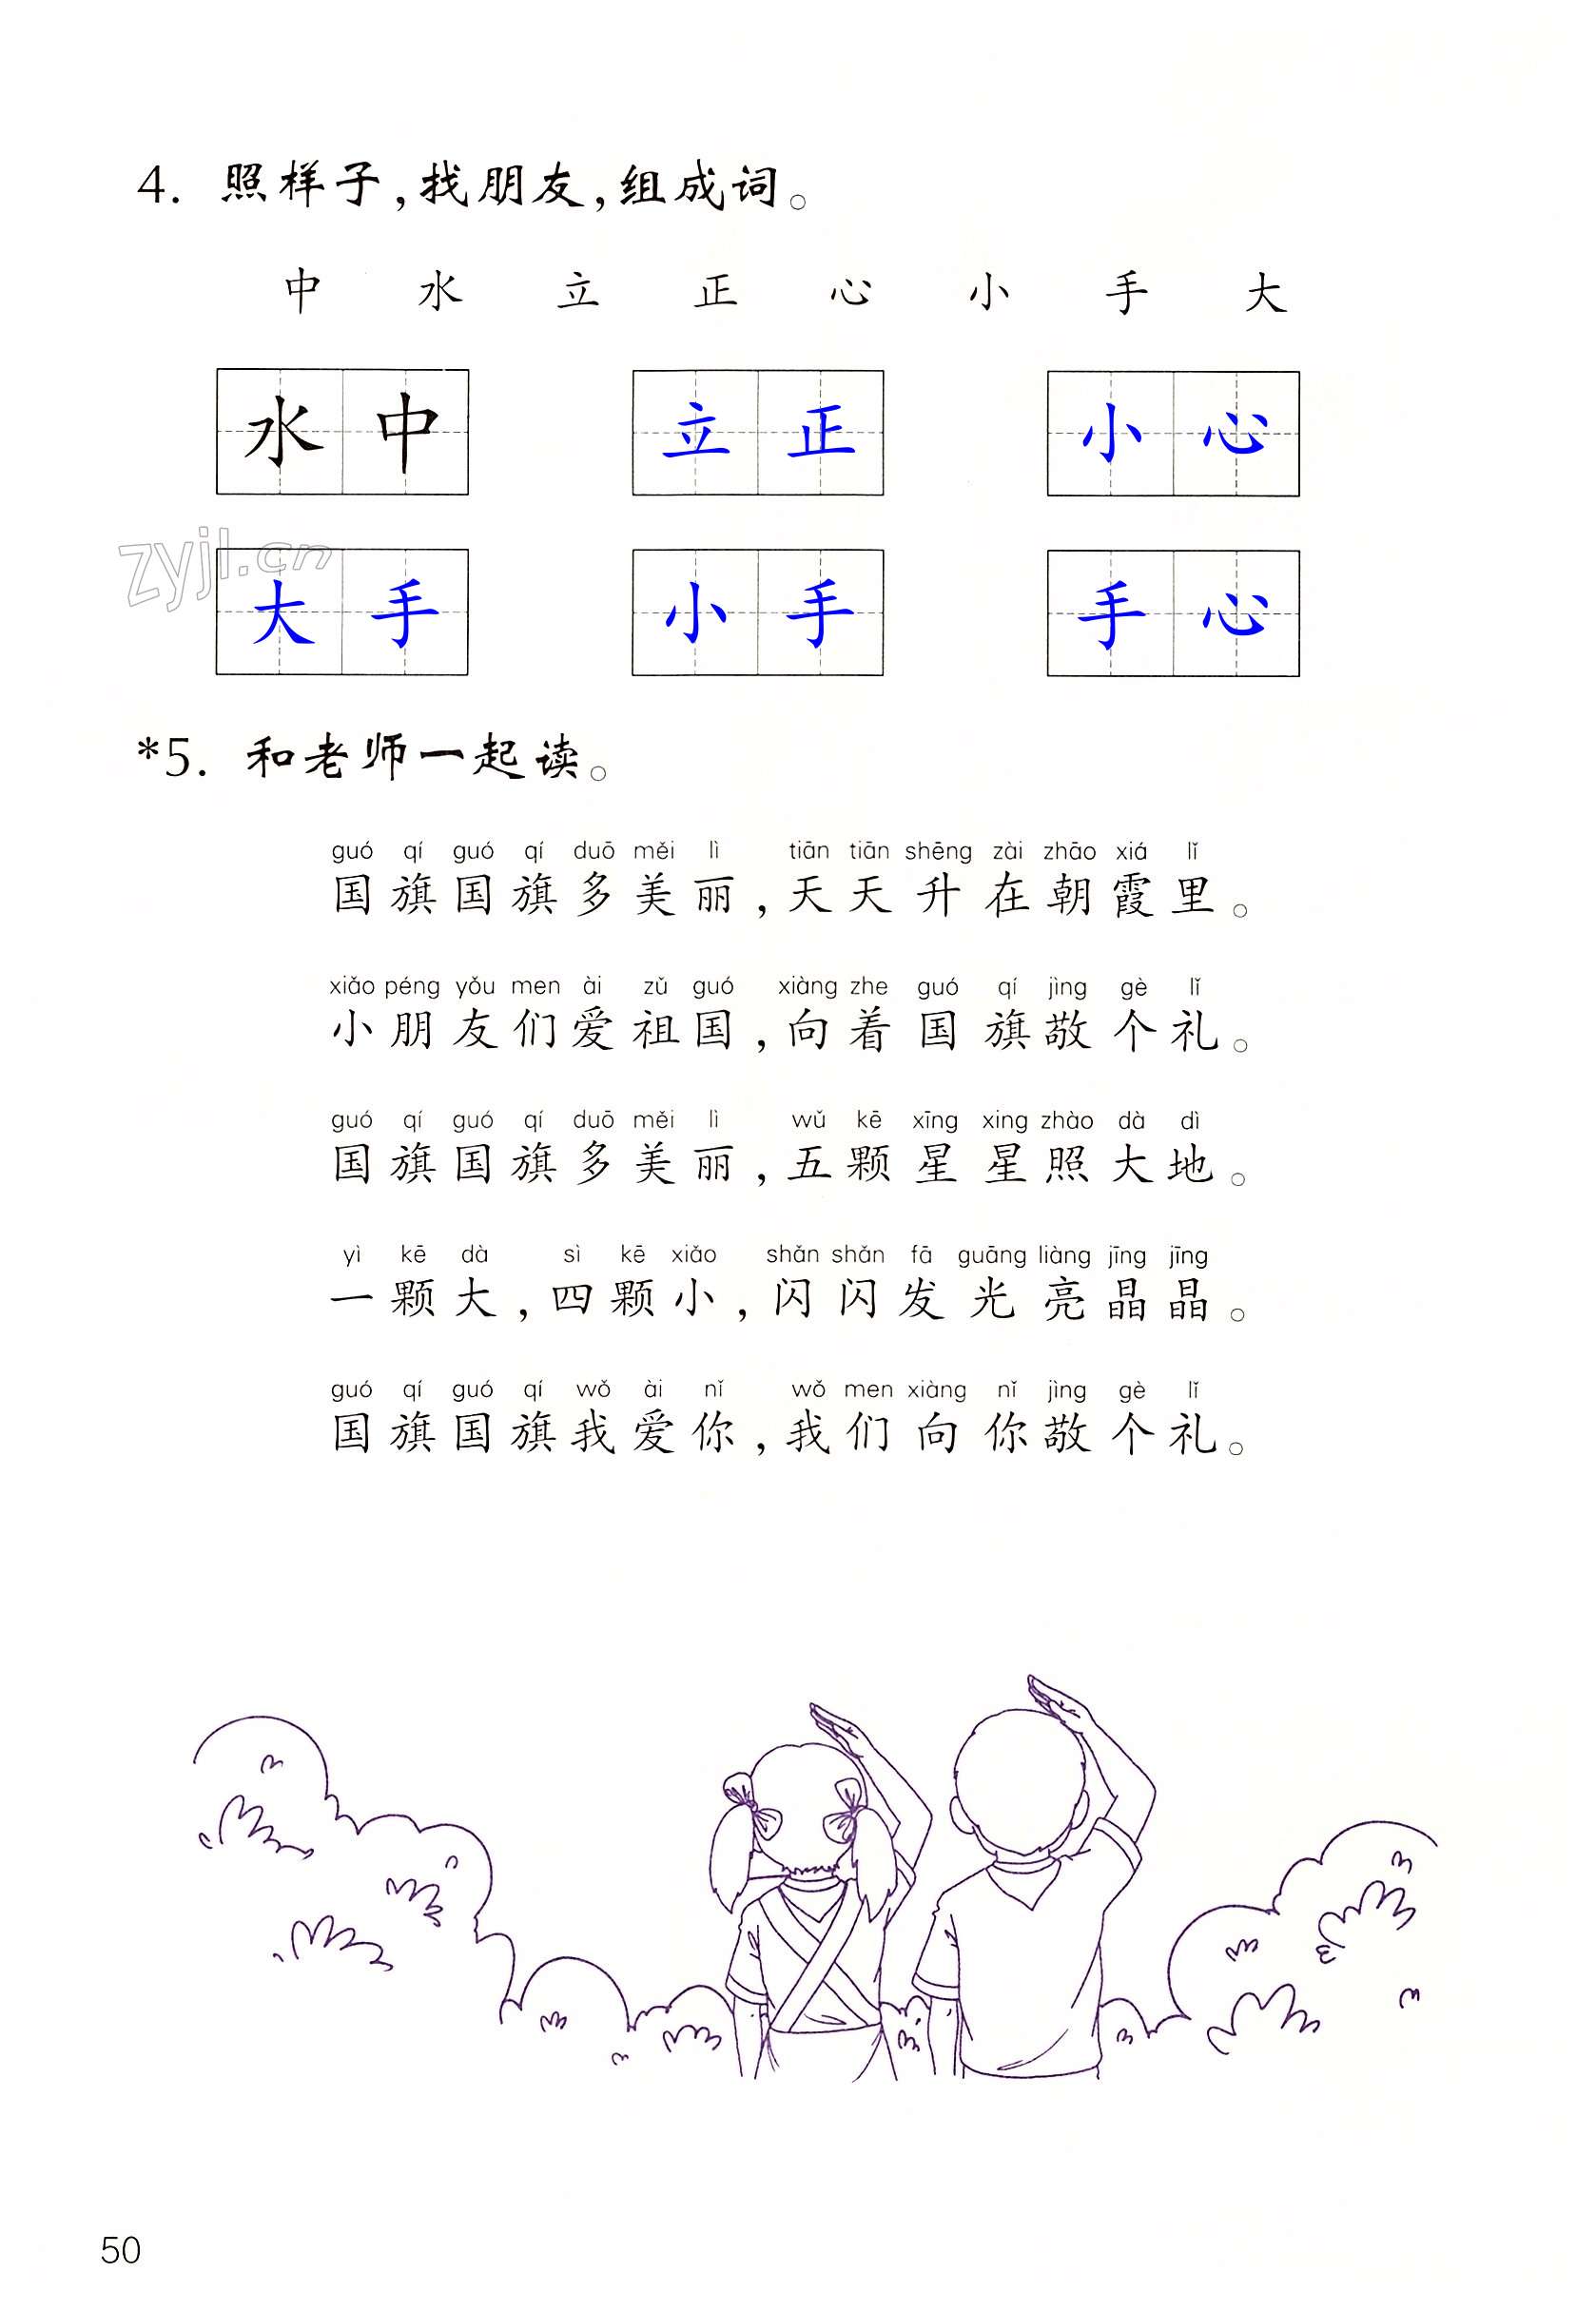 4. 照样子,找朋友,组成词。
中 水 立 正 心 小 手 大
水中 立正 小心
zyjl.cn
大手 小手 手心
*5. 和老师一起读。
guó qí guó qí duō měi lì tiān tiān shēng zài zhāo xiá lǐ
国旗国旗多美丽,天天升在朝霞里。
xiǎo péng yǒu men ài zǔ guó xiàng zhe guó qí jìng gè lǐ
小朋友们爱祖国,向着国旗敬个礼。
guó qí guó qí duō měi lì wǔ kē xīng xing zhào dà dì
国旗国旗多美丽,五颗星星照大地。
yì kē dà sì kē xiǎo shǎn shǎn fā guāng liàng jīng jīng
一颗大,四颗小,闪闪发光亮晶晶。
guó qí guó qí wǒ ài nǐ wǒ men xiàng nǐ jìng gè lǐ
国旗国旗我爱你,我们向你敬个礼。
50